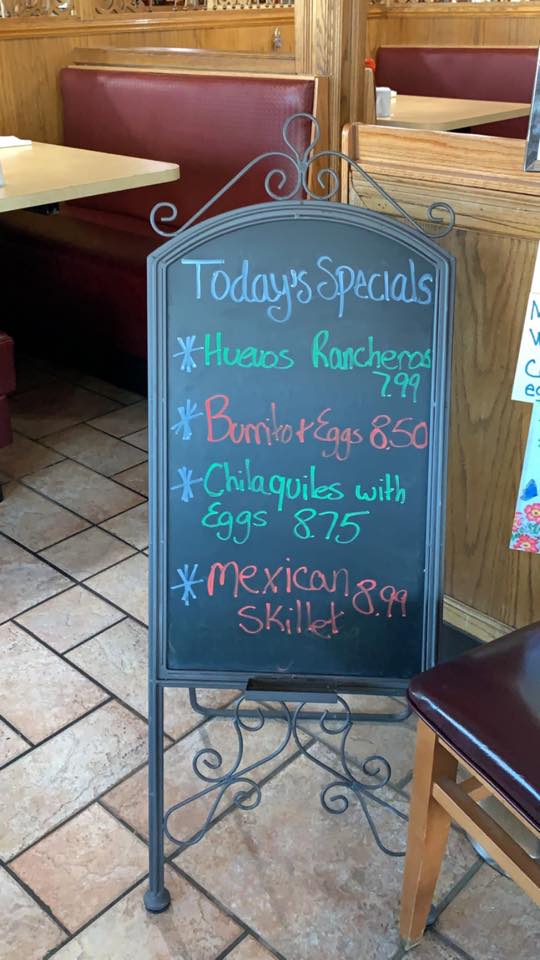 Today's Specials
* Huevos Rancheros
7.99
* Burrito + Eggs 8.50
* Chilaquiles with
Eggs 8.75
* Mexican 8.99
Skillet